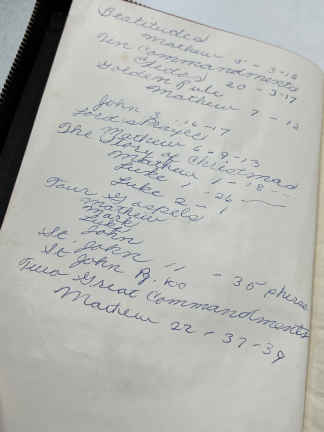 Beatitudes
Mathew 5 - 3-12
Ten Commandments
20 - 3-17
Golden Rule
Mathew 7 - 12
John 3 - 16-17
Lord's Prayer
Mathew 6 - 9-13
The Story of Christmas
Mathew 1 - 18
Luke 1 - 26
Luke 2 - 1
Four Gospels
Mathew
Mark
Luke
John
St. John 11 - 35
St John
Two Great Commandments
Mathew 22 - 37-39